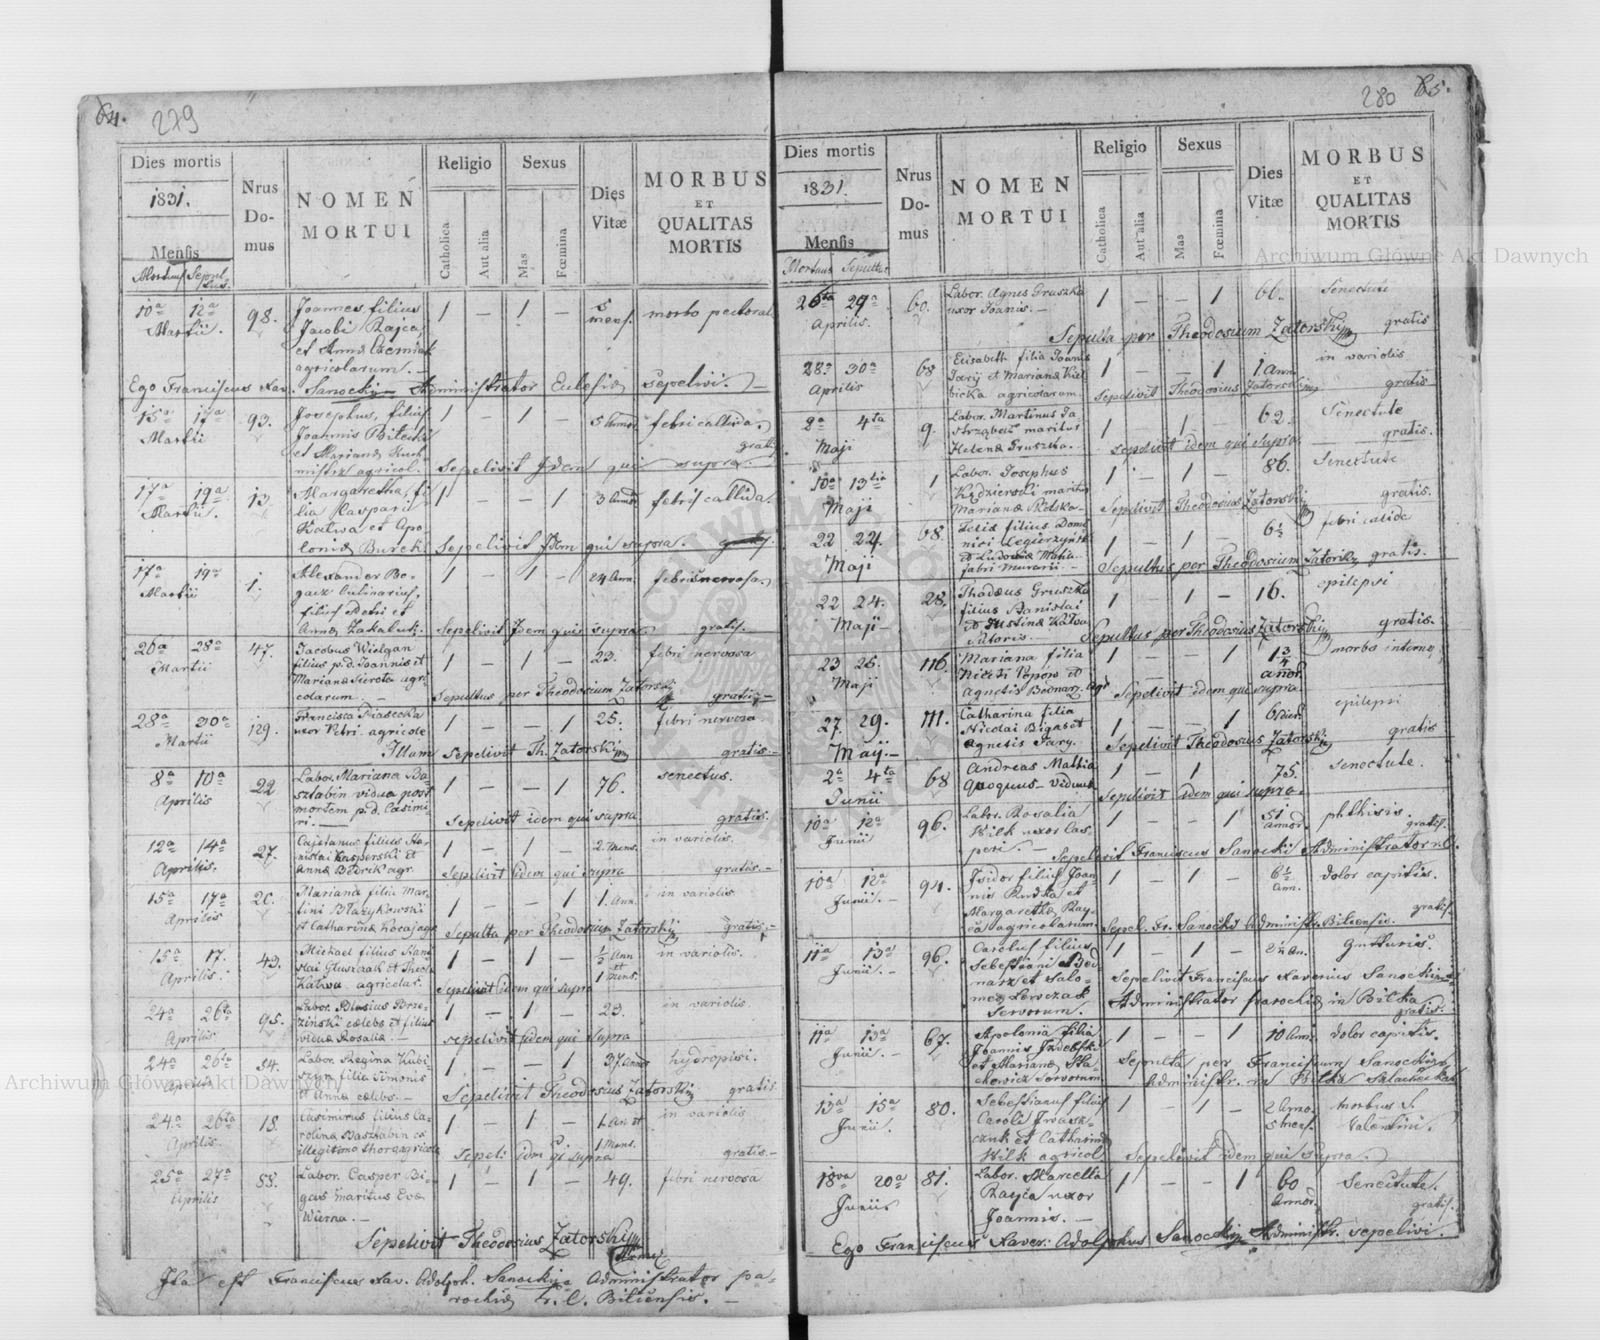 64.
279
Dies mortis
1831.
Mensis
Nrus
Do-
mus
NOMEN
MORTUI
Religio
Catholica
Aut alia
Sexus
Mas
Fœmina
Dies
Vitæ
MORBUS
ET
QUALITAS
MORTIS
10a 12a
Martii.
98.
Joannes filius
Jacobi Rajca
et Anna
agricolarum. —
1 — 1 —
5
mens.
morbo pectoral.
Ego Franciscus Xav. Sanocki Administrator Eclesiæ sepelivi. —
15a 17a
Martii
93.
Josephus, filius
Joannis Bilecki
et Marianæ
agricol.
1 — 1 —
5 annor.
febri callida.
gratis
Sepelivit Idem qui supra. —
17a 19a
Martii.
13.
Margaretha, fi
lia Kaspari
Kalwa et Apo
loniæ Burek
1 — — 1
3 annor.
febris callida
Sepelivit Idem qui supra. gratis.
17a 19a
Martii
1.
Alexander Bo-
gacz Culinarius,
filius Petri et
Annæ Zakaluk.
1 — 1 —
24 ann.
febris nervosa.
Sepelivit Idem qui supra gratis.
26a 28a
Martii
47.
Jacobus Wielgan
filius p.d. Joannis et
Marianæ Sierota agri-
colarum. —
1 — 1 —
23.
febri nervosa
Sepultus per Theodosium Zatorski gratis. —
28a 30a
Martii
129.
Francisca Piasecka
uxor Petri agricolæ
1 — — 1
25.
febri nervosa.
Illam Sepelivit Th. Zatorski gratis. —
8a 10a
Aprilis
22
Labor. Mariana Ba-
sztabin vidua post
mortem p.d. Casimi-
ri. —
1 — — 1
76.
senectus.
Sepelivit idem qui supra gratis.
12a 14a
Aprilis.
27.
Cajetanus filius Sta-
nislai Kasperski et
Annæ agr.
1 — 1 —
2. mens.
in variolis.
Sepelivit idem qui supra gratis. —
15a 17a
Aprilis
20.
Mariana filia Mar-
tini Błażykowski
et Catharinæ
1 — — 1
1. Ann.
in variolis
Sepulta per Theodosium Zatorski gratis. —
15a 17.
Aprilis.
43.
Michael filius Stani
slai Gluszczak et Theclæ
Kalwa agricolar.
1 — 1 —
in variolis.
Sepelivit idem qui supra
24a 26ta
Aprilis
95.
Labor. Blasius Brze-
ziński cælebs et filius
viduæ Rosaliæ —
1 — 1 —
23.
in variolis
sepelivit idem qui supra
24a 26ta
Aprilis
54.
Labor. Regina Kubi-
szyn filia Simonis
et Annæ cælebs. —
1 — — 1
37. annor
hydropisi.
Sepelivit Theodosius Zatorski gratis
24a 26ta
Aprilis
18.
Casimirus filius Ca-
rolinæ Basztabin ex
illegitimo thoro agricolæ
1 — 1 —
1. An et
1 Mens.
in variolis
Sepeli. idem qi supra gratis. —
25a 27a
Aprilis
88.
Labor. Casper Bi-
gus maritus Evæ
Wierna. —
1 — 1 —
49.
febri nervosa
Sepelivit Theodosius Zatorski
Ita est Franciscus Xav. Adolph. Sanocki Administrator pa-
rochiæ r. l. Bilcensis. —
280
65.
Dies mortis
1831.
Mensis
Mortuus Sepultus
Nrus
Do-
mus
NOMEN
MORTUI
Religio
Catholica
Aut alia
Sexus
Mas
Fœmina
Dies
Vitæ
MORBUS
ET
QUALITAS
MORTIS
26ta 29a
Aprilis.
60.
Labor. Agnes Gruszka
uxor Joanis. —
1 — — 1
66.
Senectute
Sepulta per Theodosium Zatorski gratis
28a 30a
Aprilis
68
Elisabeth filia Joanis
Jary et Marianæ Kiel
bicka agricolarum.
1 — — 1
1. Ann.
in variolis
Sepelivit Theodosius Zatorski gratis
2a 4ta
Maji
9.
Labor. Martinus Ja
strząbek maritus
Helenæ Gruszka.
1 — 1 —
62.
Senectute
Sepelivit idem qui supra — gratis.
10a 13tia
Maji
1
Labor. Josephus
Kędzierski maritus
Marianæ
1 — 1 —
86.
Senectute
Sepelivit Theodosius Zatorski gratis.
22 24.
Maji
68.
Felix filius Domi
nici Węgierzyński
et Ludovicæ
fabri Murarii. —
1 — 1 —
6½
febri calide
Sepultus per Theodosium Zatorski gratis.
22 24.
Maji
28.
Thadæus Gruszka
filius Stanislai
et Justinæ Kalwa
1 — 1 —
16.
epilepsi
Sepultus per Theodosius Zatorski gratis.
23 25.
Maji
116.
Mariana filia
Niceti Popow et
Agnetis Bodnar. Agr
1 — — 1
1¾
anor.
morbo interno
Sepelivit idem qui supra
27. 29.
Maji. —
111.
Catharina filia
Nicolai Bigas et
Agnetis Jary.
1 — — 1
epilepsi
Sepelivit Theodosius Zatorski gratis
2a 4ta
Junii
68
Andreas Mathia
Quoquus — viduus
1 — 1
75.
senectute.
Sepelivit idem qui supra
10a 12a
Junii
96.
Labor. Rosalia
Wilk uxor Cas
peri. —
1 — — 1
51
annor.
phthisis.
gratis.
Sepelivit Franciscus Sanocki Administrator r.l.
10a 12a
Junii. —
94.
Isidor filius Joan-
nis Rudka et
Margarethæ Ray-
ca agricolarum.
1 — 1 —
6½
ann.
dolor capitis.
gratis.
Sepel. Fr. Sanocki Administr. Bilcensis.
11a 13a
Junii. —
96.
Carolus filius
Sebestiani Bed
narz et Salo-
meæ Lewczak
Servorum.
1 — 1 —
2½ an.
Gutturis.
Sepelivit Franciscus Xaverius Sanocki
Administrator parochiæ in Bilka
gratis.
11a 13a
Junii. —
67.
Apolonia filia
Joannis
et Marianæ Sta
chowicz Servorum
1 — — 1
10 ann.
dolor capitis.
Sepulta per Franciscum Sanocki
Administr. in Bilka Szlachecka
13a 15a
Junii.
80.
Sebestianus filius
Caroli Iwasz-
czuk et Catharinæ
Wilk agricol.
1 — 1 —
2 anno.
5 mens.
morbus S.
Valentini.
Sepelivit idem qui supra.
18va 20a
Junii
81.
Labor. Marcella
Rayca uxor
Joannis. —
1 — — 1
60
Annor.
Senectute.
gratis.
Ego Franciscus Xaver. Adolphus Sanocki Administr. sepelivi.
Archiwum Główne Akt Dawnych
Archiwum Główne Akt Dawnych